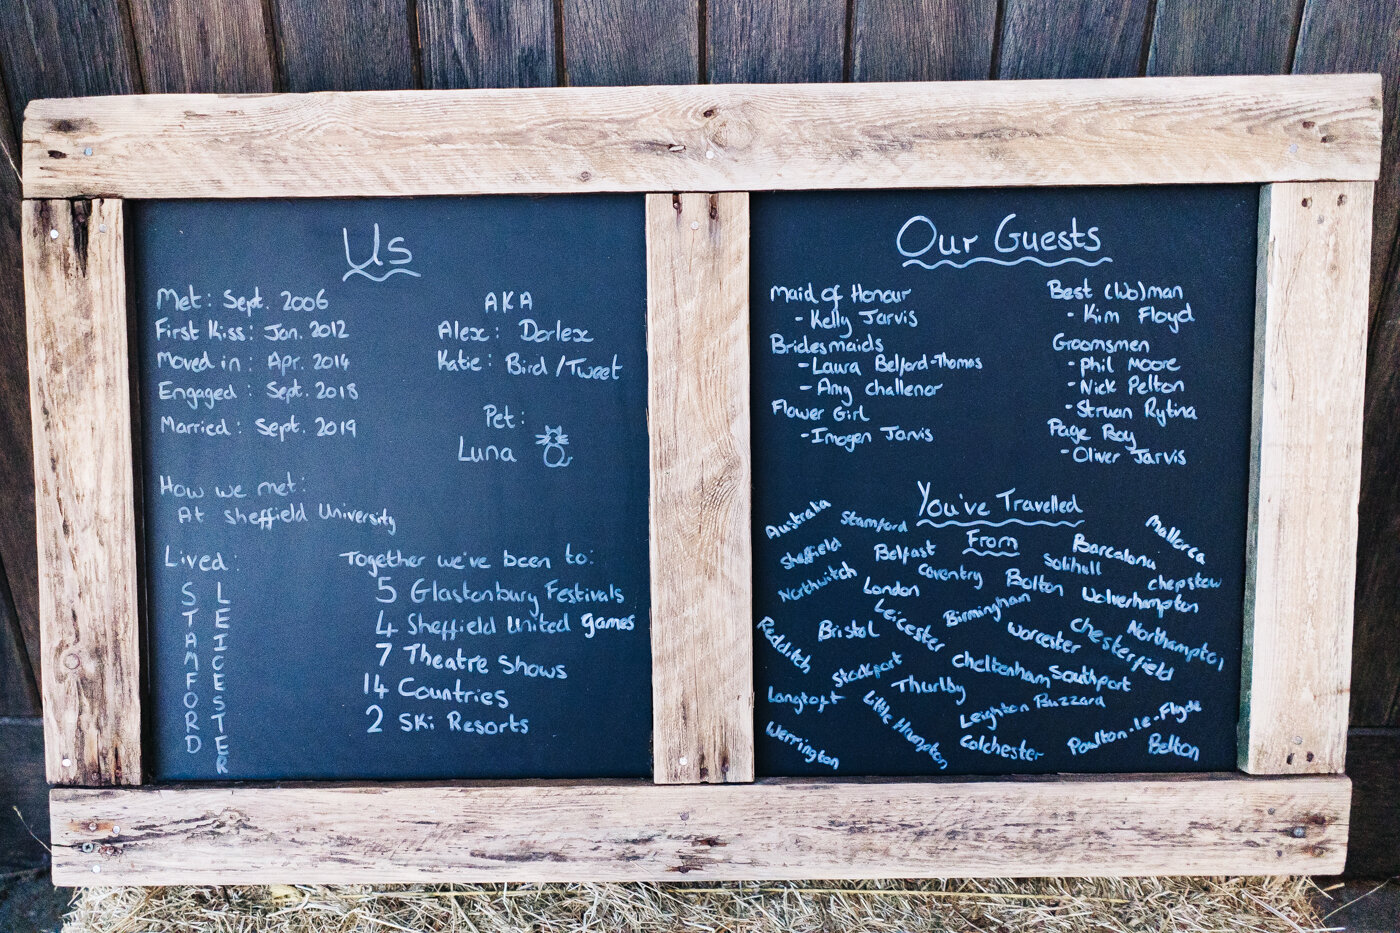 Us
Met: Sept. 2006
First Kiss: Jan. 2012
Moved in: Apr. 2014
Engaged: Sept. 2018
Married: Sept. 2019
AKA
Alex: Dorlex
Katie: Bird/Tweet
Pet:
Luna
How we met:
At Sheffield University
Lived:
STAMFORD
LEICESTER
Together we've been to:
5 Glastonbury Festivals
4 Sheffield United games
7 Theatre Shows
14 Countries
2 Ski Resorts
Our Guests
Maid of Honour
- Kelly Jarvis
Bridesmaids
- Laura Belford-Thomas
- Amy Challenor
Flower Girl
- Imogen Jarvis
Best (Wo)man
- Kim Floyd
Groomsmen
- Phil Moore
- Nick Pelton
- Struan Rytina
Page Boy
- Oliver Jarvis
You've Travelled
From
Australia
Stamford
Mallorca
Sheffield
Belfast
Barcalona
Solihull
Northwitch
London
Coventry
Bolton
Chepstow
Wolverhampton
Redditch
Bristol
Leicester
Birmingham
Worcester
Chesterfield
Northampton
Stockport
Thurlby
Cheltenham
Southport
Langtoft
Little Hampton
Leighton Buzzard
Werrington
Colchester
Poulton-le-Fylde
Belton